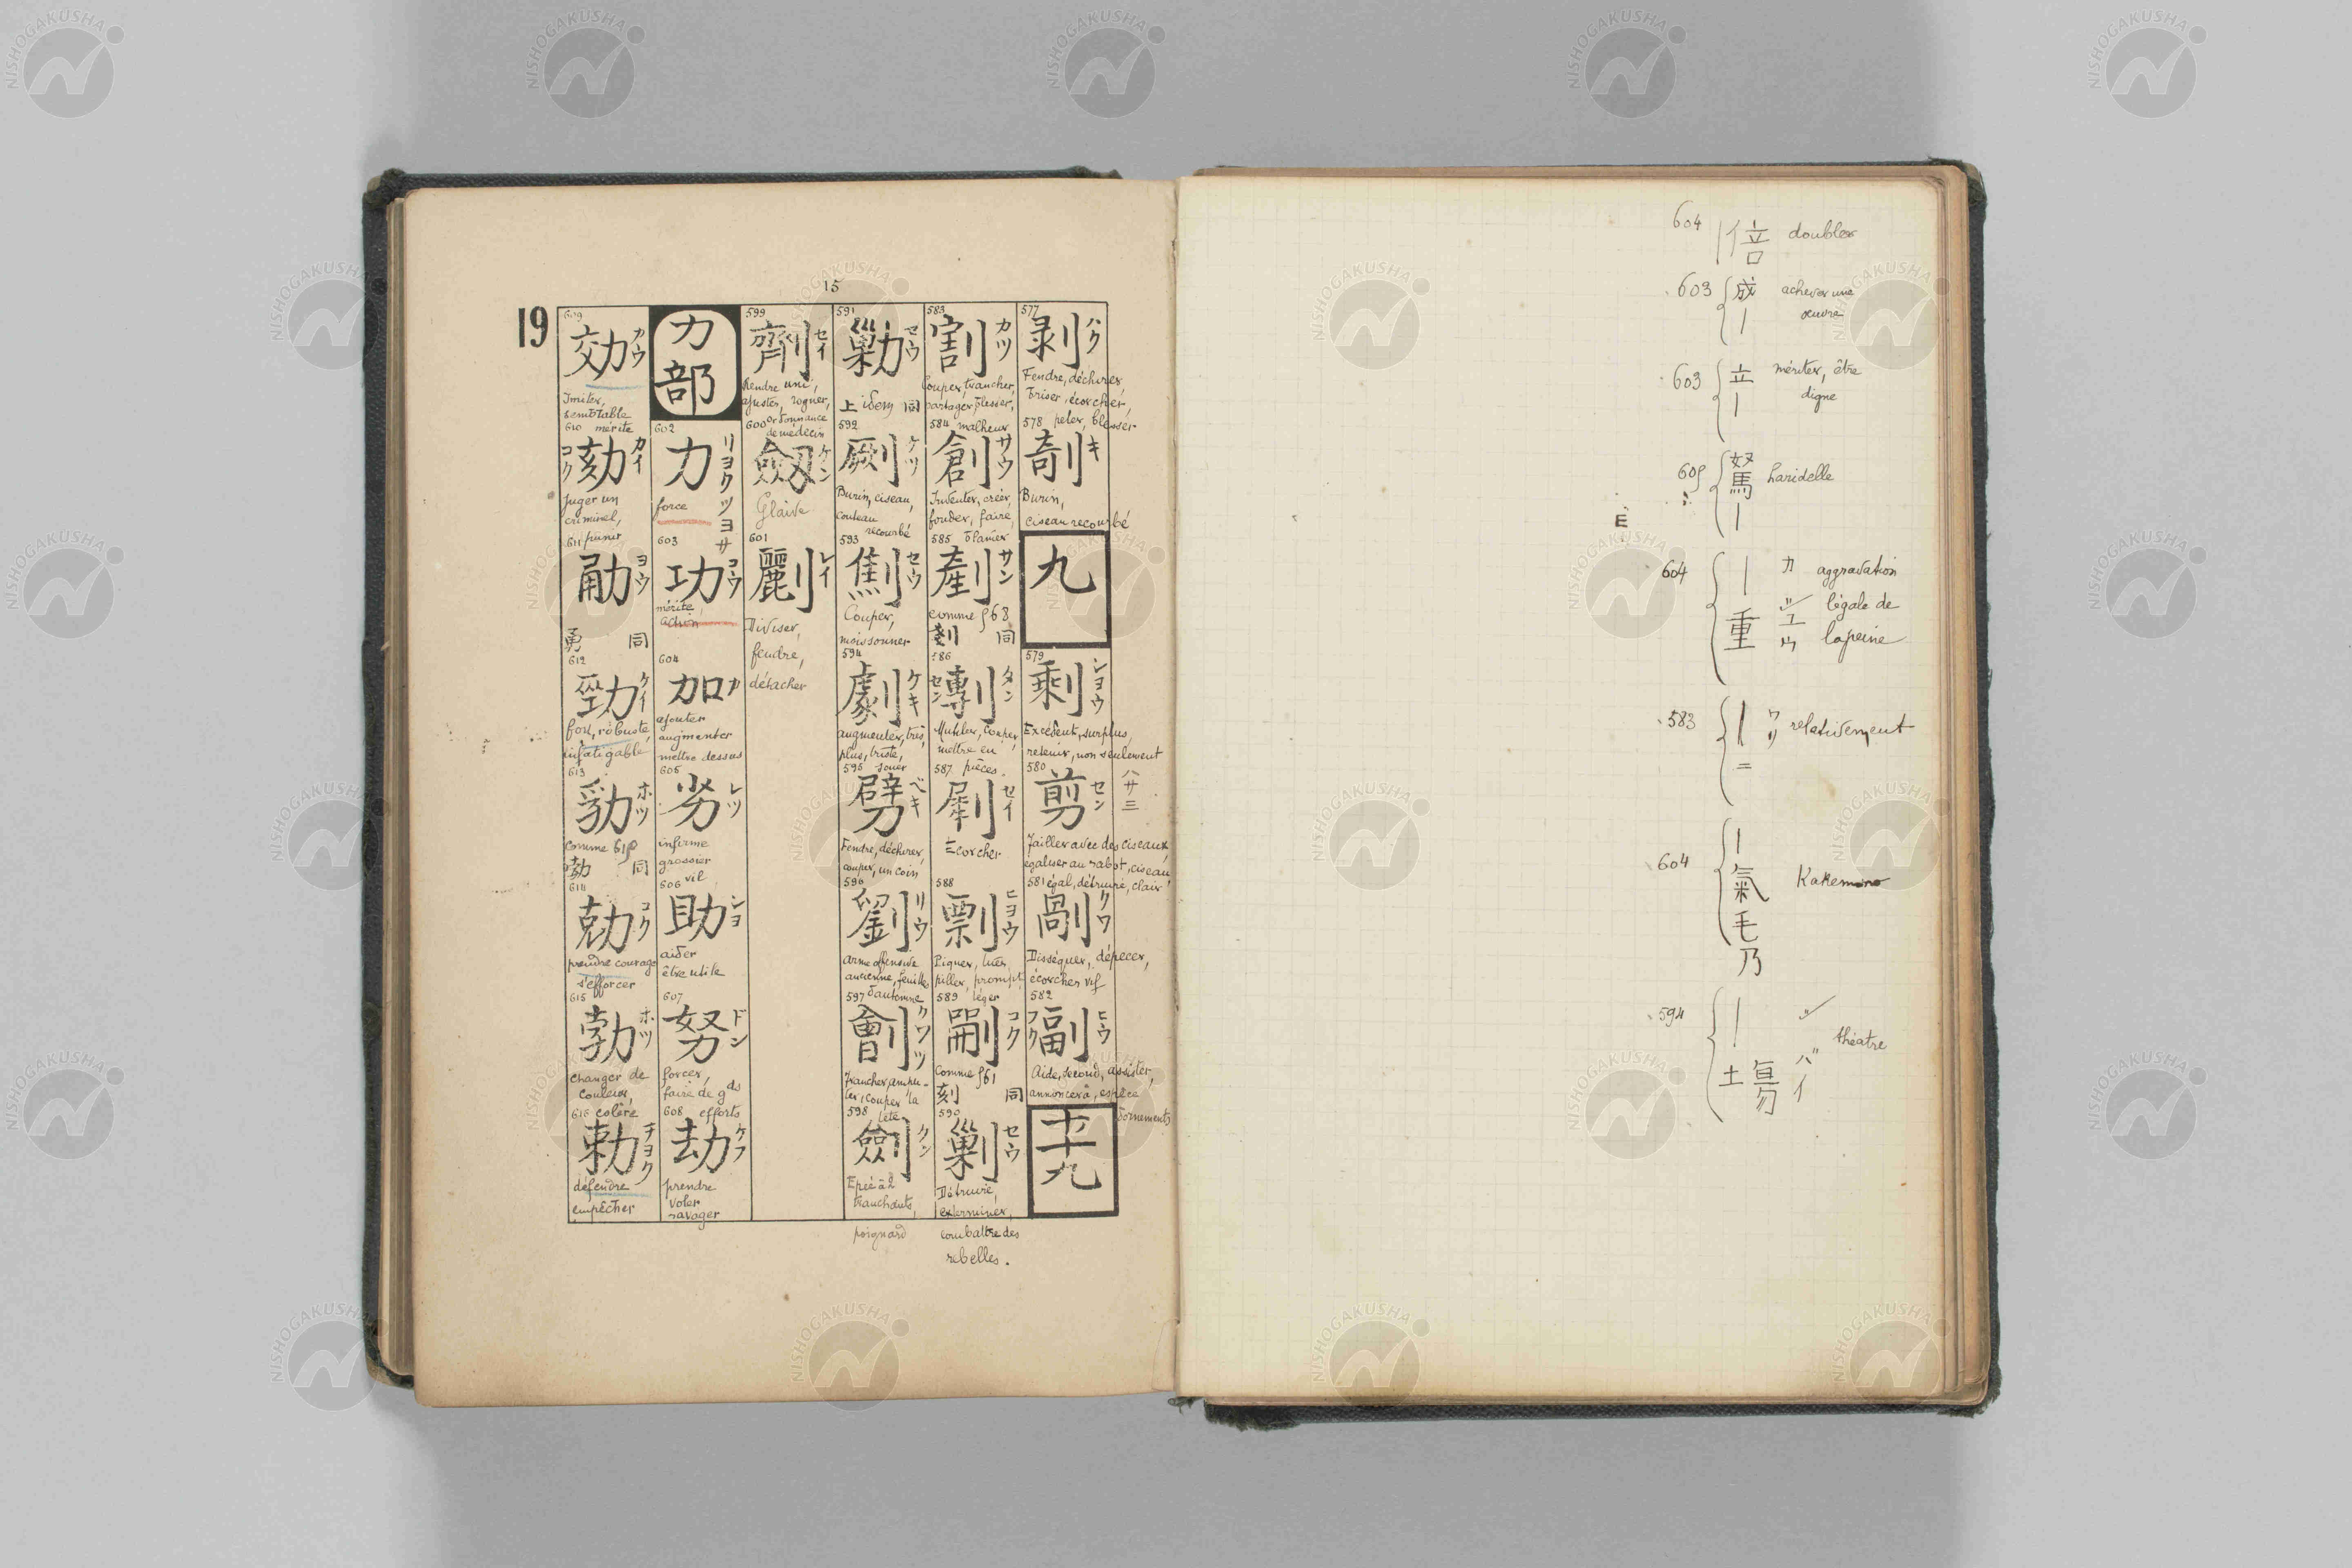 15
19
577
剥
ハク
Fendre, déchirer,
briser, écorcher,
578 peler, blesser
剞
キ
Burin,
ciseau recourbé
九
579
剰
ショウ
Excédent, surplus,
retenir, non seulement
580
剪
セン
ハサミ
Tailler avec des ciseaux,
égaliser au rabot, ciseau
581 égal, détruire, clair
剮
クワ
Disséquer, dépecer,
écorcher vif
582
副
フク
ヒウ
Aide, second, assister,
annoncer à, espèce
d'ornements
十九
583
割
カツ
Couper, trancher,
partager, blesser,
584 malheur
創
サウ
Inventer, créer,
fonder, faire,
585 blâmer
剷
サン
comme 568
剗 同
586
剸
セン
タン
Mutiler, couper,
mettre en
587 pièces.
犀刂
セイ
Ecorcher
588
剽
ヒヨウ
Piquer, tuer,
piller, prompt
589 léger
剋
コク
comme 561
刻 同
590
剿
セウ
Détruire,
exterminer,
combattre des
rebelles.
591
勦
セウ
上 idem 同
592
劂
ケツ
Burin, ciseau,
couteau
recourbé
593
劁
セウ
Couper,
moissonner
594
劇
ケキ
augmenter, très,
plus, triste,
595 jouer
劈
ベキ
Fendre, déchirer,
couper, un coin
596
劉
リウ
arme offensive
ancienne, feuilles
597 d'automne
劊
クワツ
Trancher, ampu-
ter, couper la
598 tête
劍
ケン
Epée à 2
tranchants,
poignard
599
劑
セイ
Rendre uni,
ajuster, rogner,
600 ordonnance
de médecin
劔
ケン
Glaive
601
劙
レイ
Diviser,
fendre,
détacher
力部
602
力
リヨク
ツヨサ
force
603
功
コウ
mérite,
action
604
加
カ
ajouter
augmenter
mettre dessus
605
劣
レツ
infirme
grossier
606 vil
助
ショ
aider
être utile
607
努
ドン
forcer,
faire de gds
608 efforts
劫
ケフ
prendre
voler
ravager
609
効
カウ
Imiter,
semblable
610 mérite
劾
コク
カイ
Juger un
criminel,
611 punir
勈
ヨウ
勇 同
612
勁
ケイ
fort, robuste,
infatigable
613
ホツ
comme 615
勃 同
614
勀
コク
prendre courage
s'efforcer
615
勃
ホツ
changer de
couleur,
616 colère
勅
チヨク
défendre
empêcher
604 | 倍 doubler
603 成 | achever une
œuvre
603 立 | mériter, être
digne
605 駑 | haridelle
É
604 | 重 カ ジユウ aggravation
légale de
la peine
583 | ワリ ニ relativement
604 | 氣毛乃 Kakemono
594 | 場 バイ théâtre